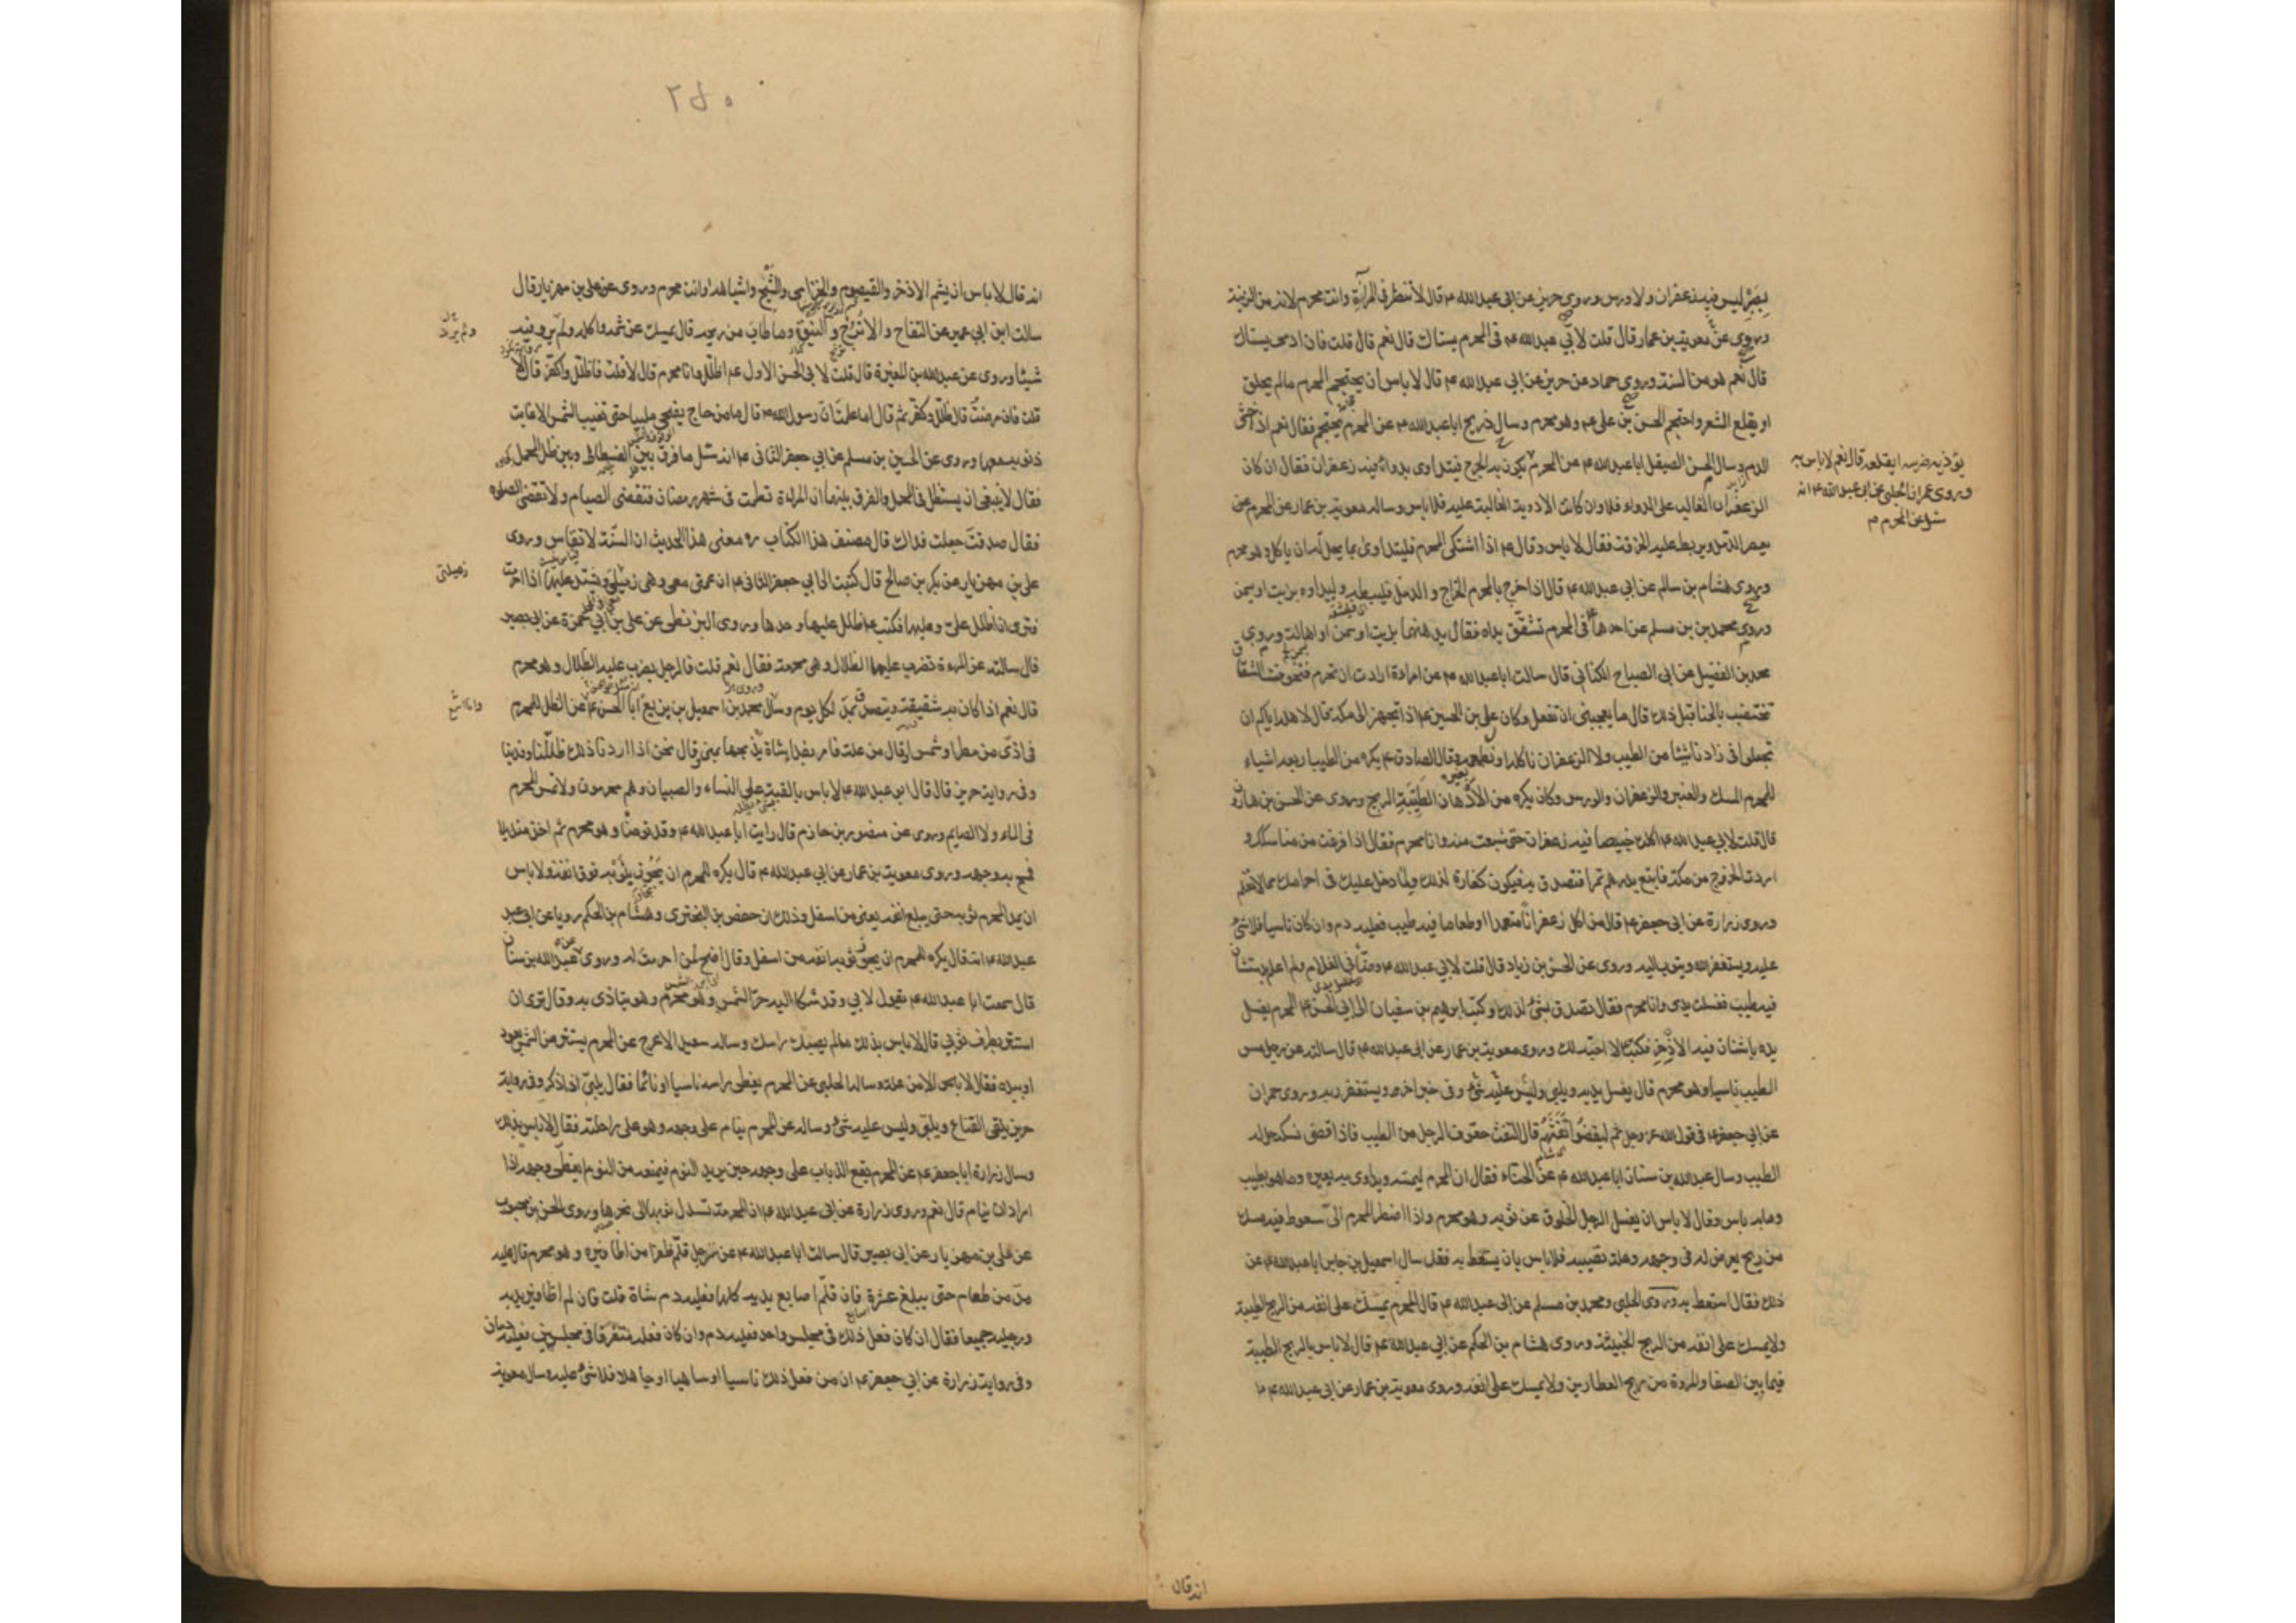 بصبر ليس فيه زعفران ولا ورس وروى حريز عن ابى عبدالله ع قال لا تنظر فى المرآة وانت محرم لانه من الزينة
وروى عن معوية بن عمار قال قلت لابي عبدالله ع فى المحرم يستاك قال نعم قال قلت فان ادمى يستاك
قال نعم هو من السنة وروى حماد عن حريز عن ابي عبدالله ع قال لا باس ان يحتجم المحرم مالم يحلق
او يقلع الشعر واحتجم الحسن بن على ع وهو محرم وسال ذريح ابا عبدالله ع عن المحرم يحتجم فقال نعم اذا خشى
الدم وسال الحسن الصيقل ابا عبدالله ع عن المحرم
يؤذيه ضرسه ايقلعه قال نعم لا باس به
وروى عمران الحلبي عن ابى عبدالله ع انه
سئل عن المحرم
يكون به الجرح فيتداوى بدواء فيه زعفران فقال ان كان
الزعفران الغالب على الدواء فلا وان كانت الادوية الغالبة عليه فلا باس وساله معوية بن عمار عن المحرم
يعصر الدمل ويربط عليه الخرقة فقال لا باس وقال ع اذا اشتكى المحرم فليتداوى بما يحل له ان ياكل وهو محرم
وروى هشام بن سالم عن ابي عبدالله ع قال اذا خرج بالمحرم الخراج والدمل فليبطه وليداوه بزيت او سمن
وروى محمد بن مسلم عن احدهما فى المحرم تشقق يداه فقال يدهنهما بزيت او سمن او اهالة وروى
محمد بن الفضيل عن ابى الصباح الكنانى قال سالت ابا عبدالله ع عن امراة ارادت ان تحرم فتخوفت الشقاق
تختضب بالحنا قبل ذلك قال ما يعجبنى ان تفعل وكان على بن الحسين ع اذا تجهز الى مكة قال لاهله اياكم ان
تجعلوا فى زادنا شيئا من الطيب ولا الزعفران ناكله او نطعمه وقال الصادق ع يكره من الطيب اربعة اشياء
للمحرم المسك والعنبر والزعفران والورس وكان يكره من الادهان الطيبة الريح وروى عن الحسن بن هارون
قال قلت لابي عبدالله ع اكلت خبيصا فيه زعفران حتى شبعت منه وانا محرم فقال اذا فرغت من مناسكك و
اردت الخروج من مكة فابتع بدرهم تمرا فتصدق به فيكون كفارة لذلك ولما دخل عليك فى احرامك مما لا تعلم
وروى زرارة عن ابى جعفر ع قال من اكل زعفرانا متعمدا او طعاما فيه طيب فعليه دم وان كان ناسيا فلا شئ
عليه ويستغفر الله ويتوب اليه وروى عن الحسن بن زياد قال قلت لابي عبدالله ع وضأنى الغلام ولم اعلم بدستشان
فيه طيب فغسلت يدى وانا محرم فقال تصدق بشئ لذلك وكتب ابرهيم بن سفيان الى ابي الحسن ع المحرم يغسل
يده باشنان فيه الاذخر فكتب لا احبه لك وروى معوية بن عمار عن ابى عبدالله ع قال سالته عن رجل مس
الطيب ناسيا وهو محرم قال يغسل يديه ويلبى وليس عليه شئ وفى خبر اخر ويستغفر ربه وروى حمران
عن ابي جعفر ع فى قول الله عز وجل ثم ليقضوا تفثهم قال التفث حفوف الرجل من الطيب فاذا قضى نسكه حل له
الطيب وسال عبدالله بن سنان ابا عبدالله ع عن الحناء فقال ان المحرم ليمسه ويداوى به بعيره وما هو بطيب
وما به باس وقال لا باس ان يغسل الرجل الخلوق عن ثوبه وهو محرم واذا اضطر المحرم الى سعوط فيه مسك
من ريح يعرض له فى وجهه وعلة تصيبه فلا باس بان يستعط به فقد سال اسمعيل بن جابر ابا عبدالله ع عن
ذلك فقال استعط به وروى الحلبى ومحمد بن مسلم عن ابى عبدالله ع قال المحرم يمسك على انفه من الريح الطيبة
ولا يمسك على انفه من الريح الخبيثة وروى هشام بن الحكم عن ابي عبدالله ع قال لا باس بالريح الطيبة
فيما بين الصفا والمروة من ريح العطارين ولا يمسك على انفه وروى معوية بن عمار عن ابى عبدالله ع
انه قال
٢٥٠
انه قال لا باس ان يشم الاذخر والقيصوم والخزامى والشيح واشباهه وانت محرم وروى عن على بن مهزيار قال
سالت ابن ابي عمير عن التفاح والاترج والنبق وما طاب من ريحه قال يمسك عن شمه واكله ولم يرو فيه
شيئا وروى عن عبدالله بن المغيرة قال قلت لابى الحسن الاول ع اظلل وانا محرم قال لا قلت فاظلل واكفر قال لا
قلت فان مرضت قال ظلل وكفر ثم قال اما علمت ان رسول الله ص قال ما من حاج يضحى ملبيا حتى تغيب الشمس الا غابت
ذنوبه معها وروى عن الحسين بن مسلم عن ابي جعفر الثانى ع انه سئل ما فرق بين الفسطاط وبين ظل المحمل
فقال لا ينبغى ان يستظل فى المحمل والفرق بينهما ان المراة تطمث فى شهر رمضان فتقضى الصيام ولا تقضى الصلوة
فقال صدقت جعلت فداك قال مصنف هذا الكتاب ره معنى هذا الحديث ان السنة لا تقاس وروى
على بن مهزيار عن بكر بن صالح قال كتبت الى ابي جعفر الثانى ع ان عمتى معى وهى زميلتى ويشتد عليها اذا احرمت
زميلتى
فترى ان اظلل على وعليها فكتب ع ظلل عليها وحدها وروى البزنطى عن على بن ابي حمزة عن ابى بصير
قال سالته عن المراة تضرب عليها الظلال وهى محرمة فقال نعم قلت فالرجل يضرب عليه الظلال وهو محرم
قال نعم اذا كان به شقيقة ويتصدق بمد لكل يوم وسال محمد بن اسمعيل بن بزيع ابا الحسن ع عن الظل للمحرم
وانا اسمع
فى اذى من مطر او شمس او قال من علة فامر بفداء شاة يذبحها بمنى وقال نحن اذا اردنا ذلك ظللنا وفدينا
وفى رواية حريز قال قال ابو عبدالله ع لا باس بالقبة على النساء والصبيان وهم محرمون ولا يرتمس المحرم
فى الماء ولا الصايم وروى عن منصور بن حازم قال رايت ابا عبدالله ع وقد توضأ وهو محرم ثم اخذ منديلا
فمسح به وجهه وروى معوية بن عمار عن ابي عبدالله ع قال يكره للمحرم ان يجوز بثوبه فوق انفه ولا باس
ان يمد المحرم ثوبه حتى يبلغ انفه يعنى من اسفل وذلك ان حفص بن البخترى وهشام بن الحكم رويا عن ابى عبد
عبدالله ع انه قال يكره للمحرم ان يجوز ثوبه انفه من اسفل وقال اضح لمن احرمت له وروى عبدالله بن سنان
قال سمعت ابا عبدالله ع يقول لابي وقد شكا اليه حر الشمس وهو محرم وهو يتاذى به وقال ترى ان
استتر بطرف ثوبي قال لا باس بذلك مالم يصبك راسك وساله سعيد الاعرج عن المحرم يستتر من الشمس بعود
او بيده فقال لا الا من علة وساله الحلبى عن المحرم يغطى راسه ناسيا او نائما فقال يلبى اذا ذكر وفى رواية
حريز يلقى القناع ويلبى وليس عليه شئ وساله عن المحرم ينام على وجهه وهو على راحلته فقال لا باس بذلك
وسال زرارة ابا جعفر ع عن المحرم يقع الذباب على وجهه حين يريد النوم فيمنعه من النوم ايغطى وجهه اذا
اراد ان ينام قال نعم وروى زرارة عن ابى عبدالله ع ان المحرمة تسدل ثوبها الى نحرها وروى الحسن بن محبوب
عن على بن مهزيار عن ابى بصير قال سالت ابا عبدالله ع عن رجل قلم ظفرا من اظافيره وهو محرم قال عليه
مد من طعام حتى يبلغ عشرة فان قلم اصابع يديه كلها فعليه دم شاة قلت فان قلم اظافير يديه
ورجليه جميعا فقال ان كان فعل ذلك فى مجلس واحد فعليه دم وان كان فعله متفرقا فى مجلسين فعليه دمان
وفى رواية زرارة عن ابي جعفر ع ان من فعل ذلك ناسيا او ساهيا او جاهلا فلا شئ عليه وسال معوية